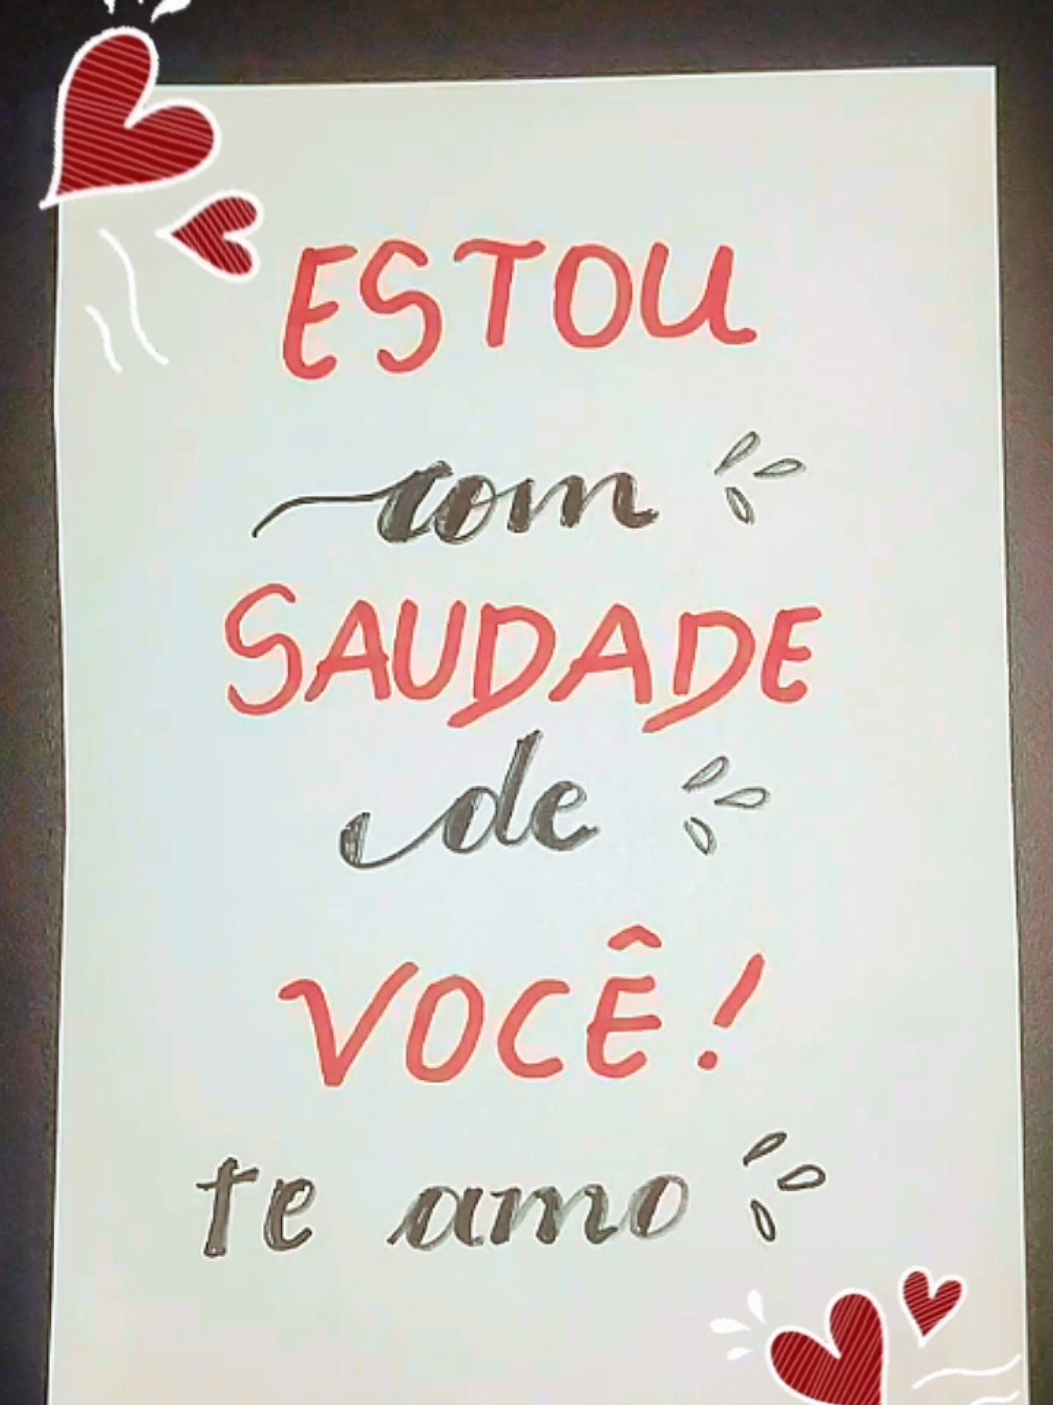 ESTOU
com
SAUDADE
de
VOCÊ!
te amo